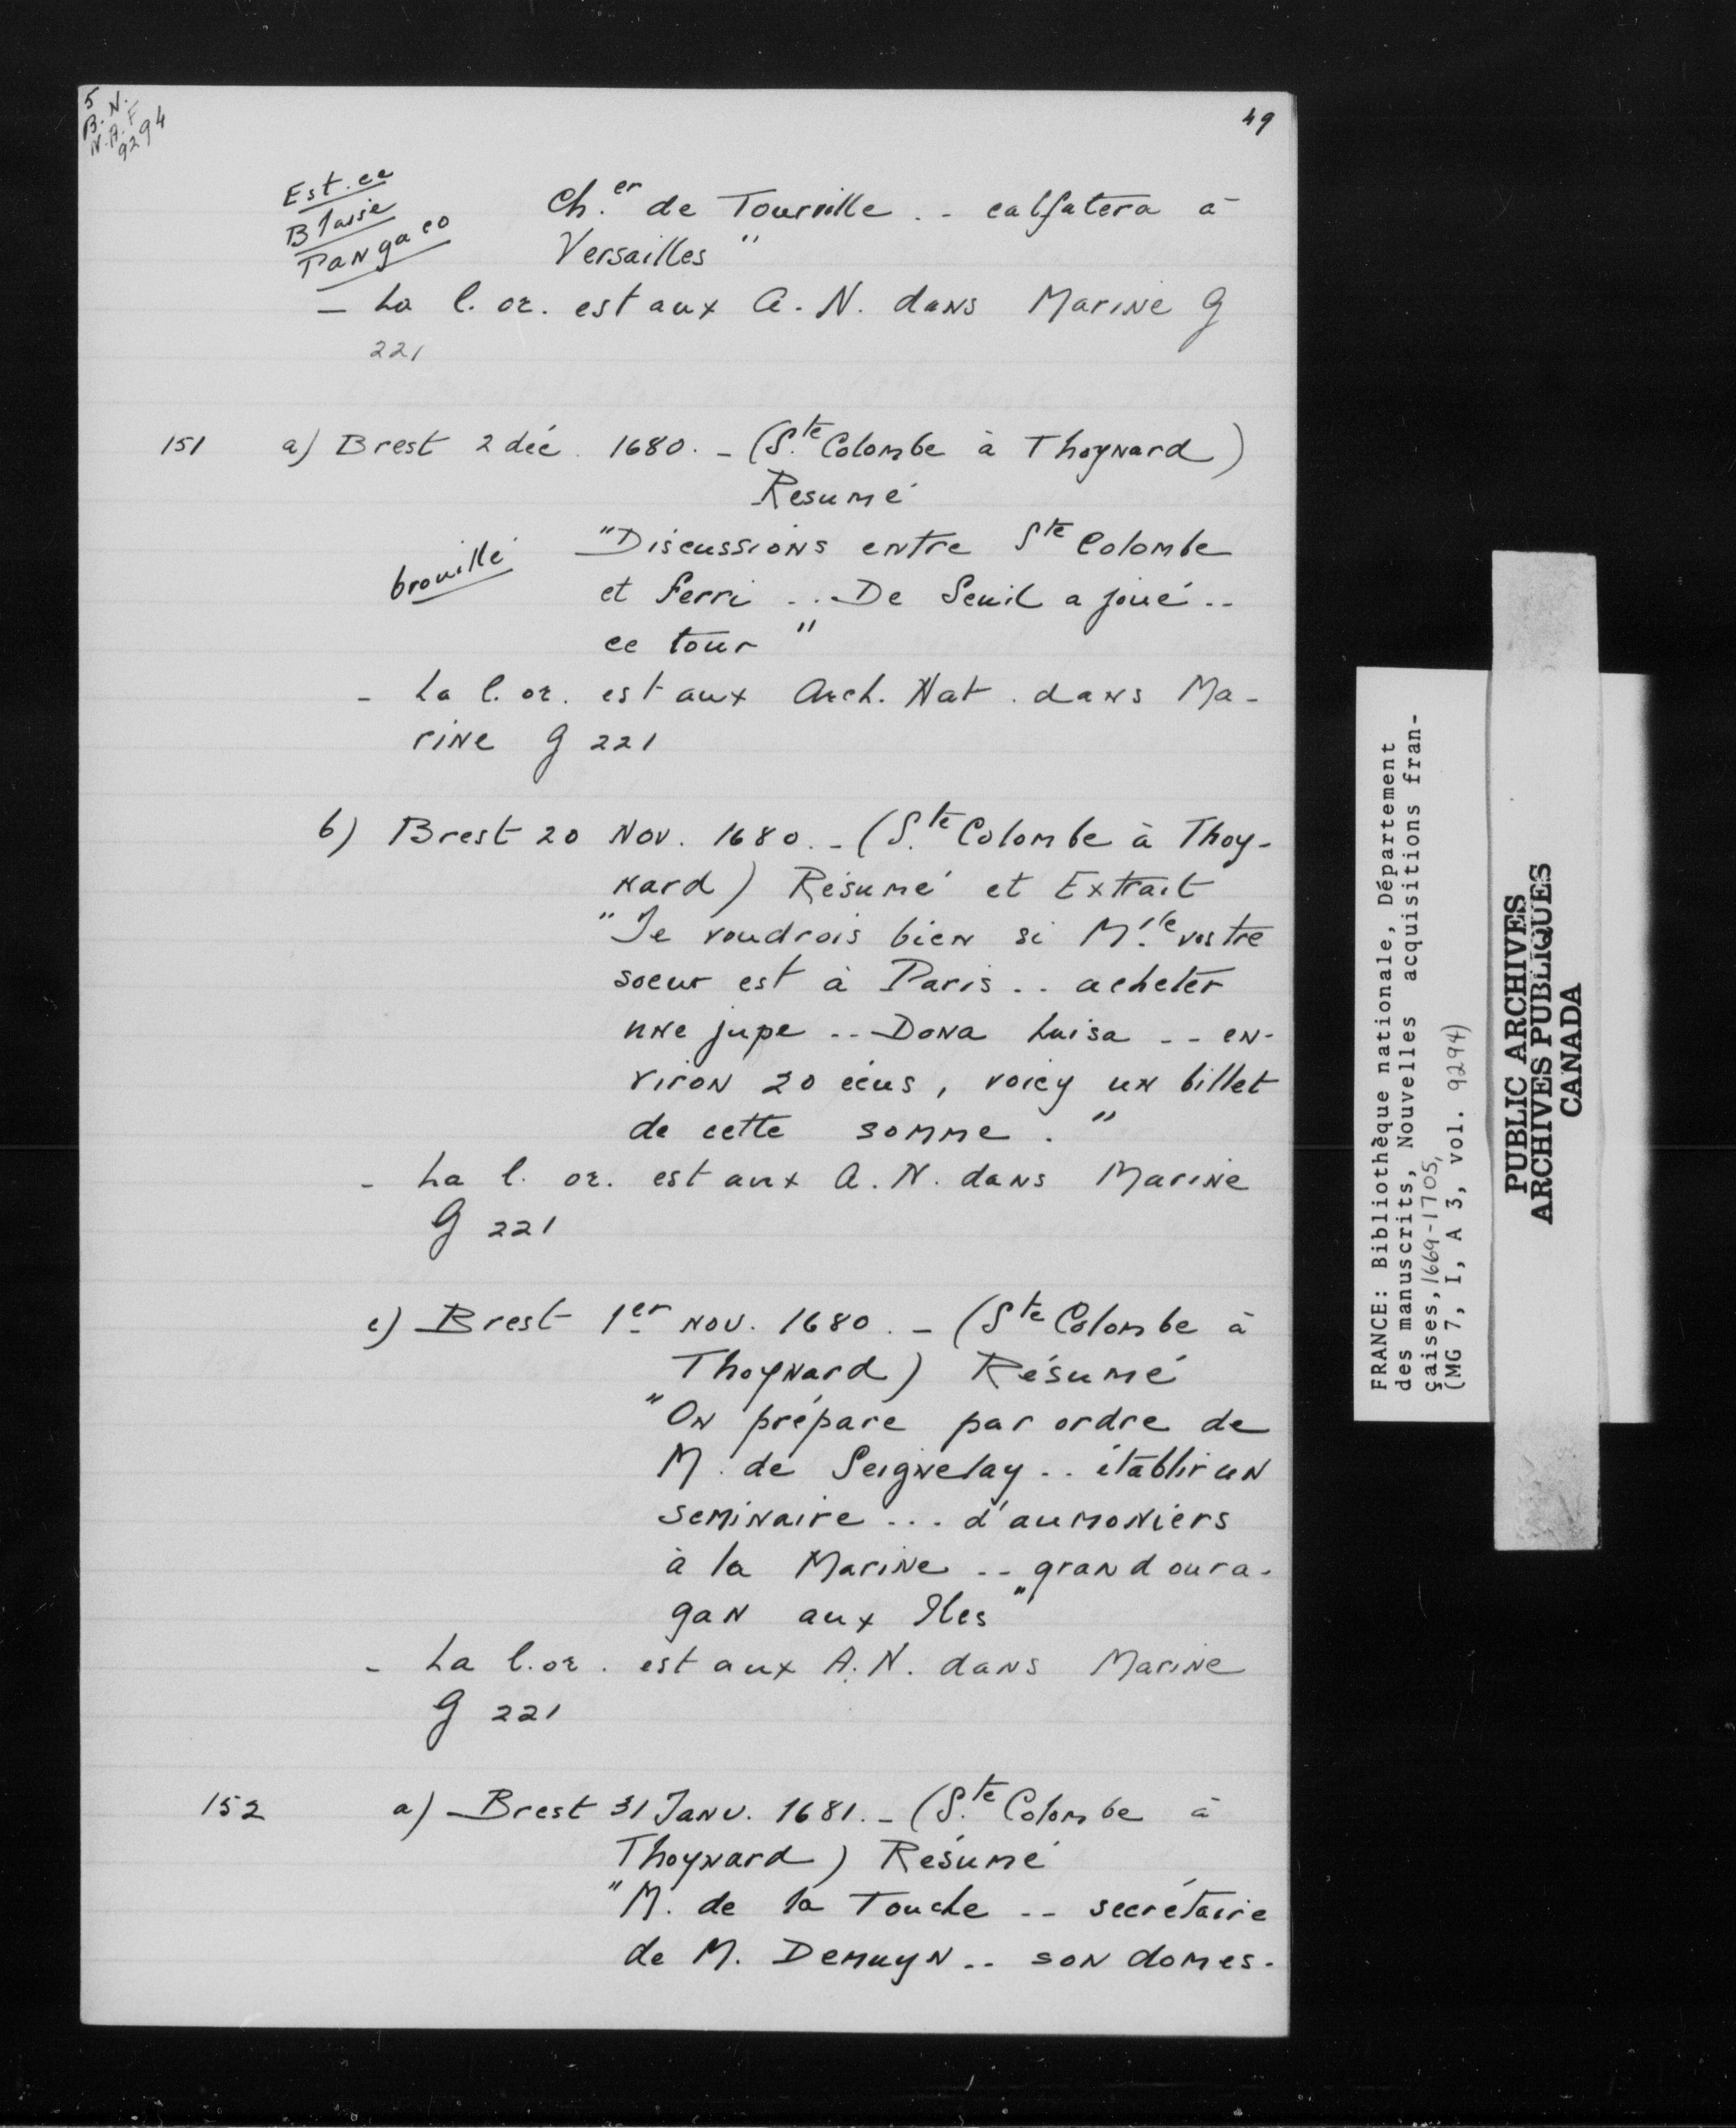 5
B.N.
N.A.F
9294
49
Est.ce
Blaise
Pangaco
Ch.er de Tourville .- calfatera à
Versailles"
- La l. or. est aux A.N. dans Marine G
221
151 a) Brest 2 déc. 1680.- (S.te Colombe à Thoynard)
Resumé
"Discussions entre Ste Colombe
brouillé
et Ferri ... De Seuil a joué ..
ce tour"
- La l. or. est aux Arch. Nat. dans Ma-
rine G 221
b) Brest 20 Nov. 1680.- (S.te Colombe à Thoy-
nard) Résumé et Extrait
"Je voudrois bien si M.lle vostre
soeur est à Paris .. acheter
une jupe .. Dona Luisa .. en-
viron 20 écus, voicy un billet
de cette somme."
- La l. or. est aux A.N. dans Marine
G 221
c) Brest 1er nov. 1680.- (Ste Colombe à
Thoynard) Résumé
"On prépare par ordre de
M. de Seignelay .. établir un
seminaire ... d'aumoniers
à la Marine .. grand oura-
gan aux Iles"
- La l. or. est aux A.N. dans Marine
G 221
152 a) Brest 31 Janv. 1681.- (S.te Colombe à
Thoynard) Résumé
"M. de la Touche .. secrétaire
de M. Demuyn .. son domes-
FRANCE: Bibliothèque nationale, Département
des manuscrits, Nouvelles acquisitions fran-
çaises, 1669-1705,
(MG 7, I, A 3, vol. 9294)
PUBLIC ARCHIVES
ARCHIVES PUBLIQUES
CANADA